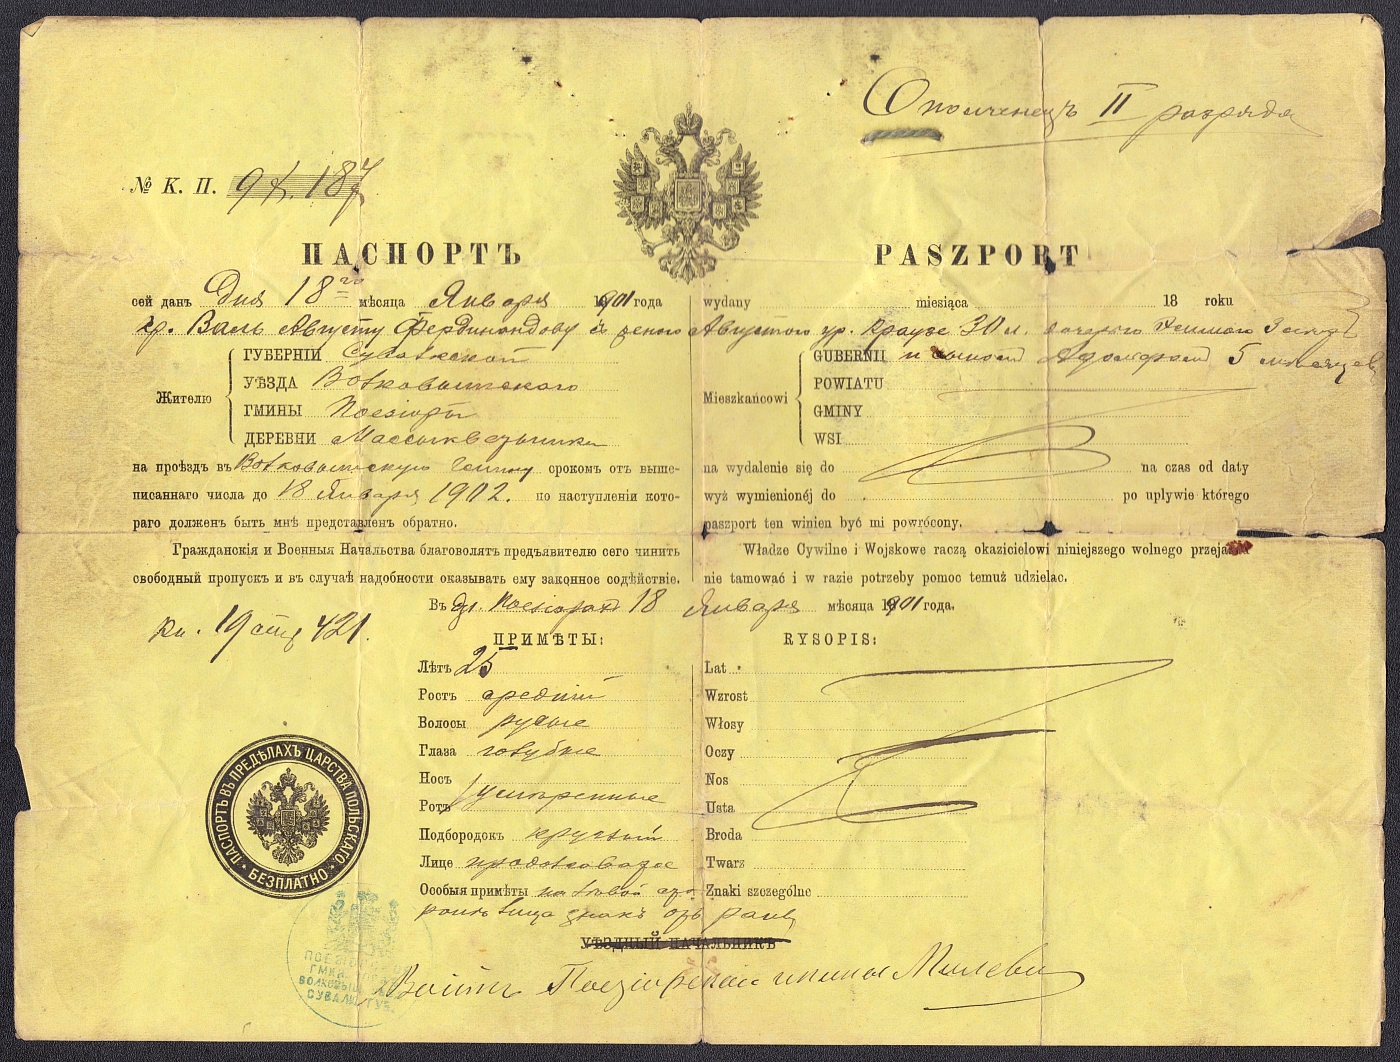 Ополченецъ II разряда
№ К. П. 187
ПАСПОРТЪ PASZPORT
сей данъ Дня 18го мѣсяца Января 1901 года wydany miesiąca 18 roku
кр. Валь Августу Фердинандову съ женою Августою ур. Краузе 30 л.
ГУБЕРНІИ Сувалкской GUBERNII и сыномъ Адольфомъ 5 мѣсяцев
УѢЗДА Волковышскаго POWIATU
Жителю Mieszkańcowi
ГМИНЫ Поезіоры GMINY
ДЕРЕВНИ WSI
на проѣздъ въ Волковышскую гмину срокомъ отъ выше- na wydalenie się do na czas od daty
писаннаго числа до 18 Января 1902. по наступленіи кото- wyż wymienionéj do po upływie którego
раго долженъ быть мнѣ представленъ обратно. paszport ten winien być mi powrócony.
Гражданскія и Военныя Начальства благоволятъ предъявителю сего чинить Władze Cywilne i Wojskowe raczą okazicielowi niniejszego wolnego przejazdu
свободный пропускъ и въ случаѣ надобности оказывать ему законное содѣйствіе. nie tamować i w razie potrzeby pomoc temuż udzielac.
Въ д. Поезіорахъ 18 Января мѣсяца 1901 года.
Кн. 19 стр 421.
ПРИМѢТЫ: RYSOPIS:
Лѣтъ 25 Lat
Ростъ средній Wzrost
Волосы русые Włosy
Глаза голубые Oczy
Носъ Nos
умѣренные
Ротъ Usta
Подбородокъ круглый Broda
Лице продолговатое Twarz
Особыя примѣты на лѣвой сто- Znaki szczególne
ронѣ лица знакъ отъ раны
УѢЗДНЫЙ НАЧАЛЬНИКЪ
Войтъ Поезіорской гмины
ПАСПОРТЪ ВЪ ПРЕДѢЛАХЪ ЦАРСТВА ПОЛЬСКАГО.
БЕЗПЛАТНО
СУВАЛК. ГУБ.